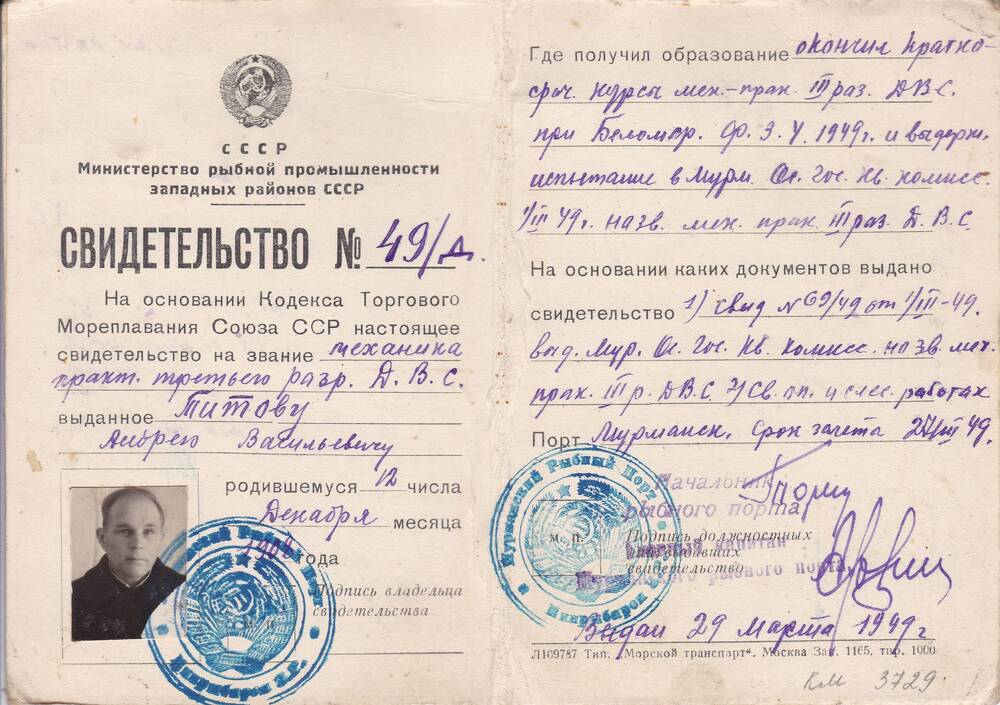 СССР
Министерство рыбной промышленности
западных районов СССР
СВИДЕТЕЛЬСТВО № 49/д.
На основании Кодекса Торгового
Мореплавания Союза ССР настоящее
свидетельство на звание механика
практ. третьего разр. Д.В.С.
выданное Титову
Андрею Васильевичу
родившемуся 12 числа
Декабря месяца
года
Подпись владельца
свидетельства
Где получил образование окончил кратко-
сроч. курсы мех.-прак. III раз. ДВС.
при Беломор. Ф. З. V. 1949г. и выдерж.
испытание в Мурм. Ос. Гос. Кв. комисс.
1/III 49г. на зв. мех. прак. III раз. Д.В.С.
На основании каких документов выдано
свидетельство 1) свид N 69/49 от 1/III-49.
выд. Мур. Ос. Гос. Кв. Комисс. на зв. мех.
прак. III р. ДВС 2) Св. оп. и работах
Порт Мурманск. Срок зачета III 49.
Начальник
рыбного порта
м. п. Подпись должностных
лиц выдавших
свидетельство
капитан
Мурманского рыбного порта
Мурманский Рыбный Порт
Выдан 29 марта 1949г
Л109787 Тип. „Морской транспорт“. Москва Зак. 1165, тир. 1000
КМ 3729.